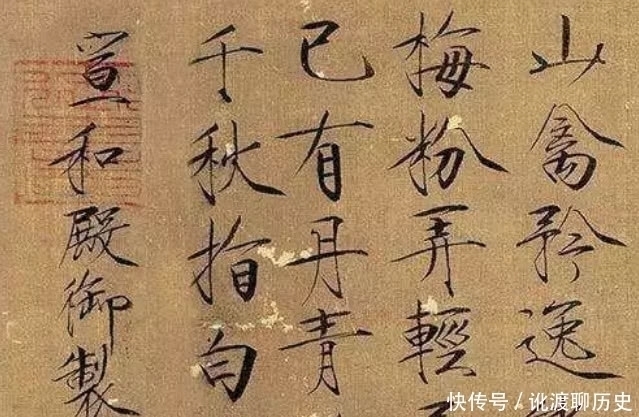 山禽矜逸
梅粉弄輕
已有丹青
千秋指白
宣和殿御製
快传号/讹渡聊历史